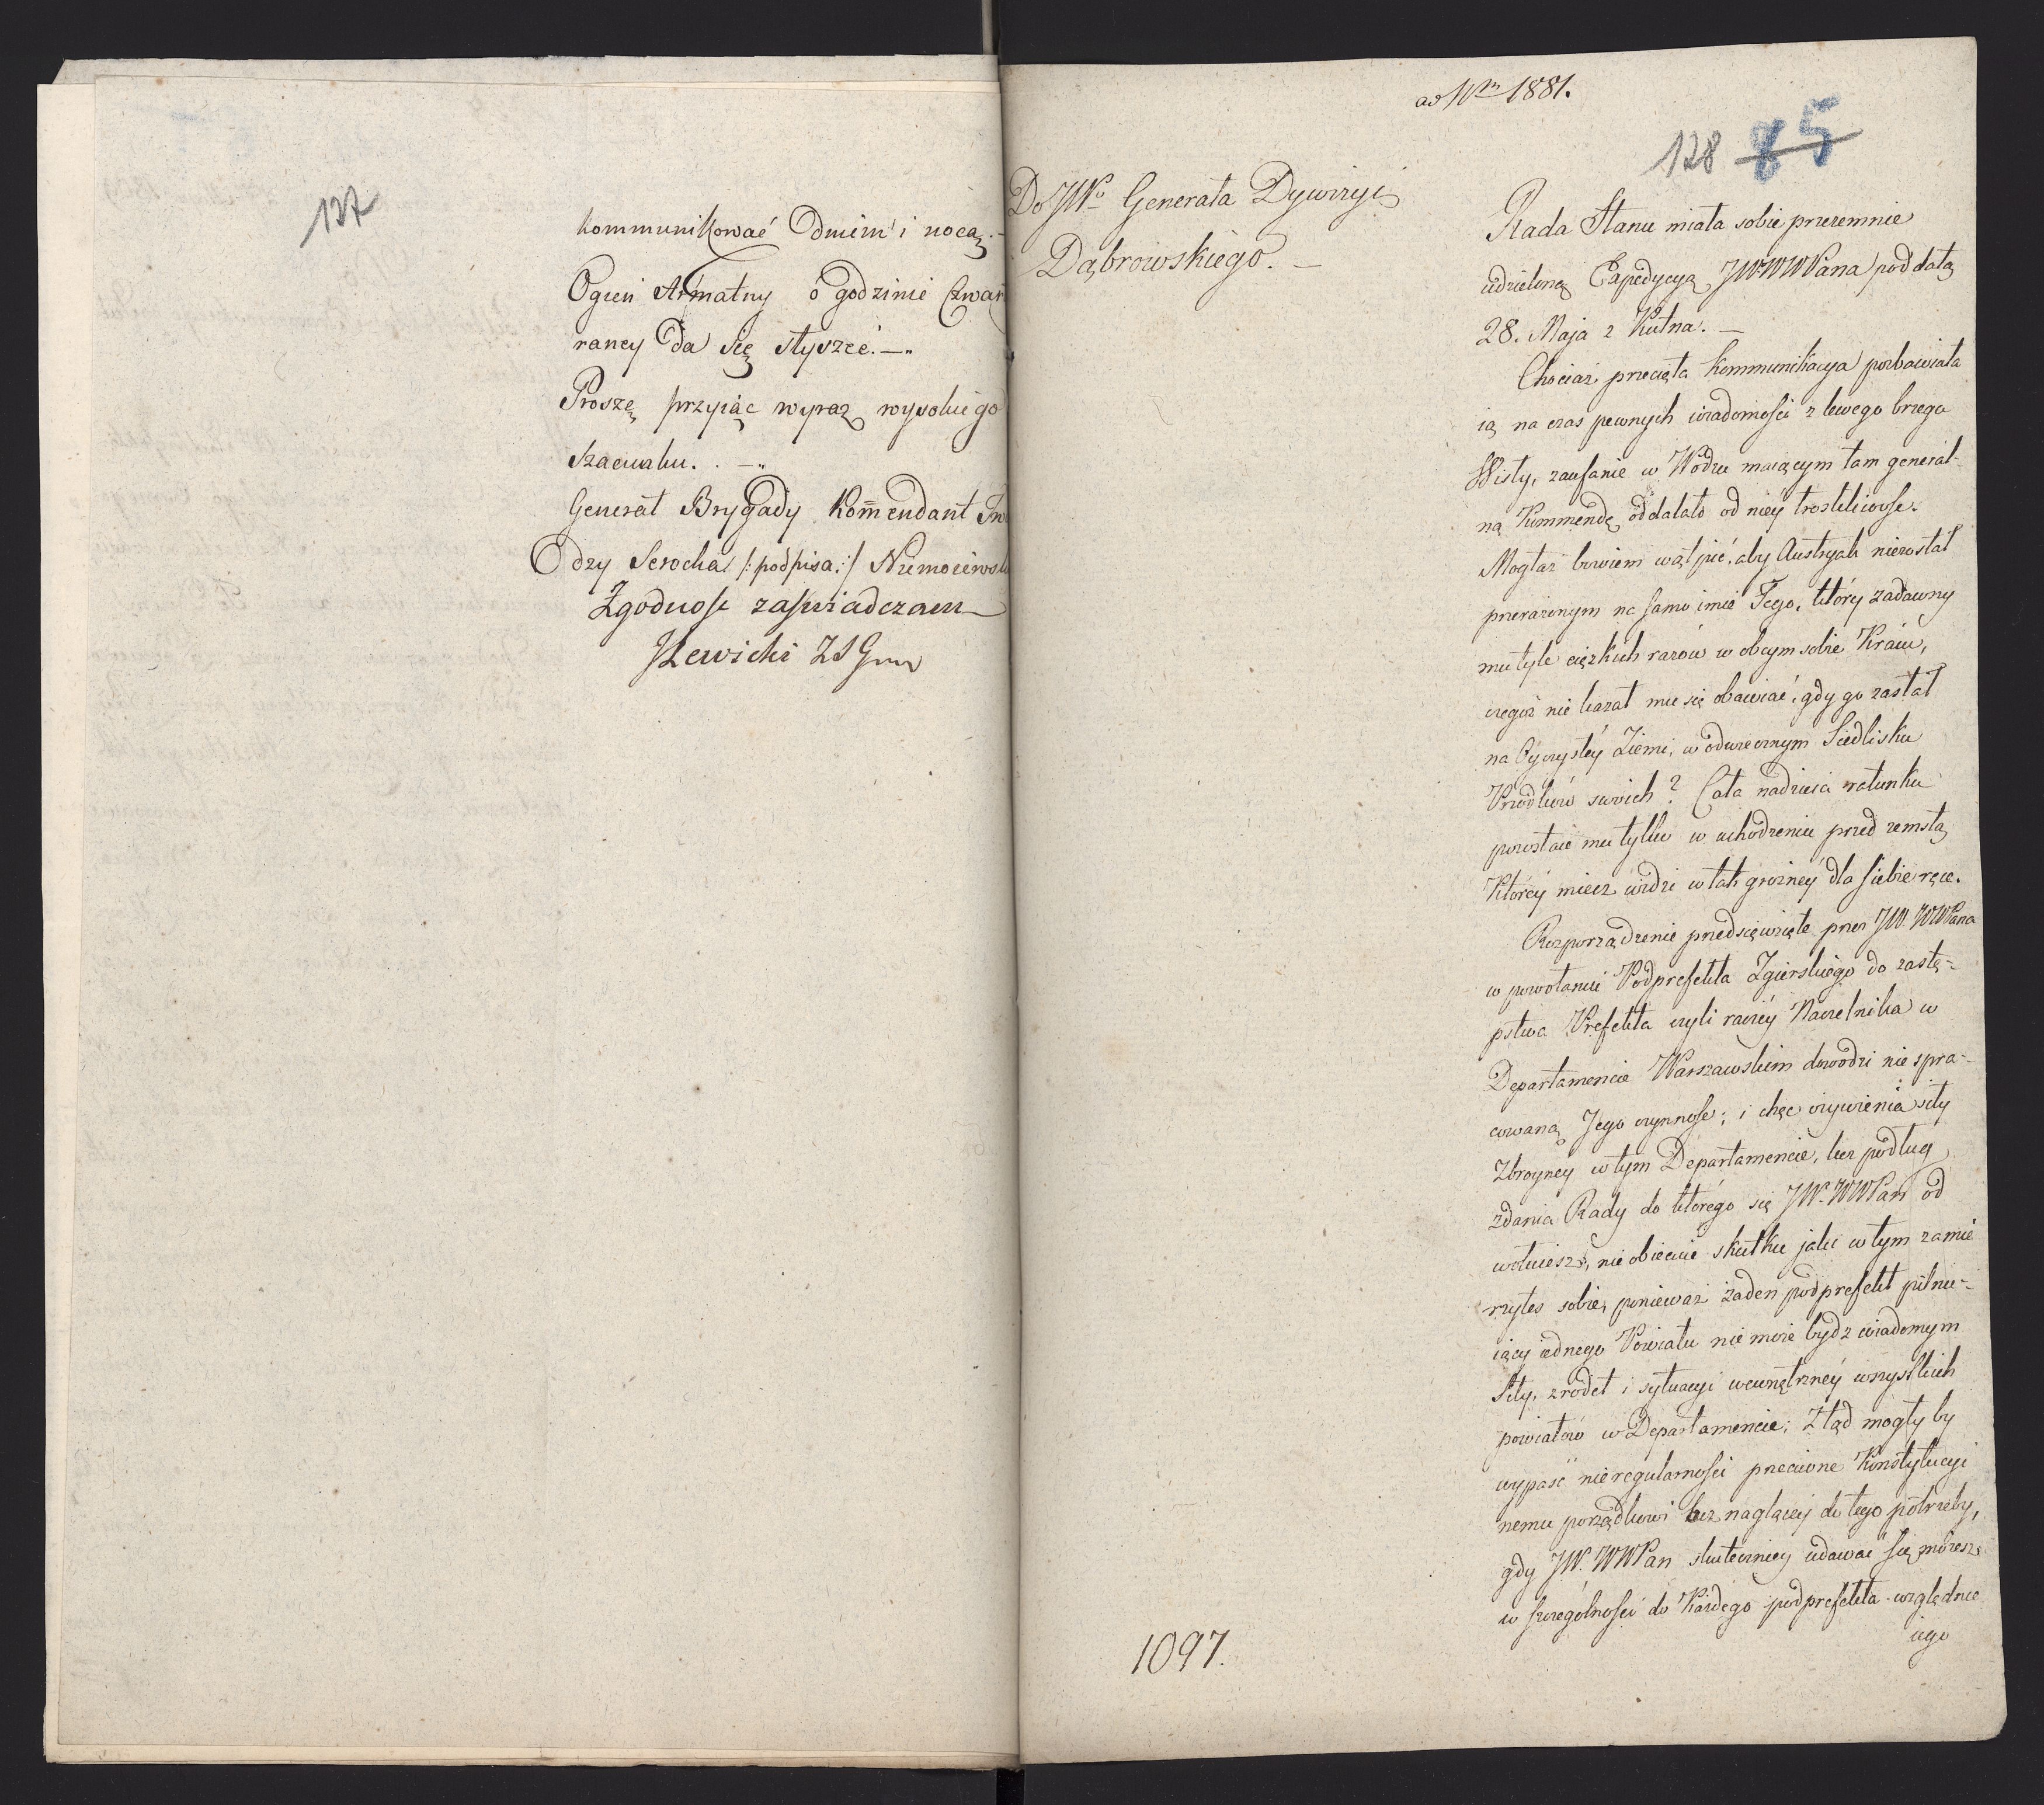 127
kommunikować Dniem i nocą. —
Ogień Armatny o godzinie Czwar
raney Da się słyszeć. —„
Proszę przyiąc wyraz wysokiego
szacunku. . —„
Generał Brygady Kommendant
Odzy Serocka /: podpisa :/ Niemoiewsk
Zgodnosc zaswiadczam
JLewicki
ad Nrm 1881.
128 85
Do JWo Generała Dywizyi
Dąbrowskiego. —
Rada Stanu miała sobie przezemnie
udzieloną Expedycyą JW WWPana pod datą
28. Maja z Kutna. —
Chociaż przecięta kommunikacya pozbawiała
ią na czas pewnych wiadomości z lewego brzega
Wisły, zaufanie w Wodzu maiącym tam general-
ną Kommendę oddalało od niey troskliwosc.
Mogłaż bowiem wątpić, aby Austryak niezostał
przerażonym na samo imie Tego, który zadawny
mu tyle cięzkich razow w obcym sobie Kraiu,
czegoż nie kazał mu się obawiać, gdy go zastał
na Oyczystéy Ziemi, w odwiecznym Siedlisku
Przodków swoich? Cała nadzieia ratunku
pozostaie mu tylko w uchodzeniu przed zemstą
Któréy miecz widzi w tak groźnéy dla siebie ręce.
Rozporządzenie przedsięwzięte przez JW. WWPana
w powołaniu Podprefekta Zgierskiego do zastę-
pstwa Prefekta czyli raczéy Naczelnika w
Departamencie Warszawskim dowodzi nie spra-
cowaną Jego czynnosc; i chęc ożywienia siły
Zbroyney w tym Departamencie, lecz podług
zdania Rady do którego się JW. WWPan od
wołuiesz, nie obiecuie skutku jaki w tym zamie
rzyłes sobie, ponieważ żaden podprefekt pilnu-
iący iednego Powiatu nie może bydz wiadomym
Siły, zrodeł i sytuacyi wewnętrznéy wszystkich
powiatów w Departamencie; Ztąd mogły by
wypaść nieregularnosci przeciwne Konstytucyi
nemu porządkowi bez naglącey do tego potrzeby,
gdy JW. WWPan skuteczniey udawac się możesz
w szczególnosci do Każdego podprefekta względnie
iego
1097.